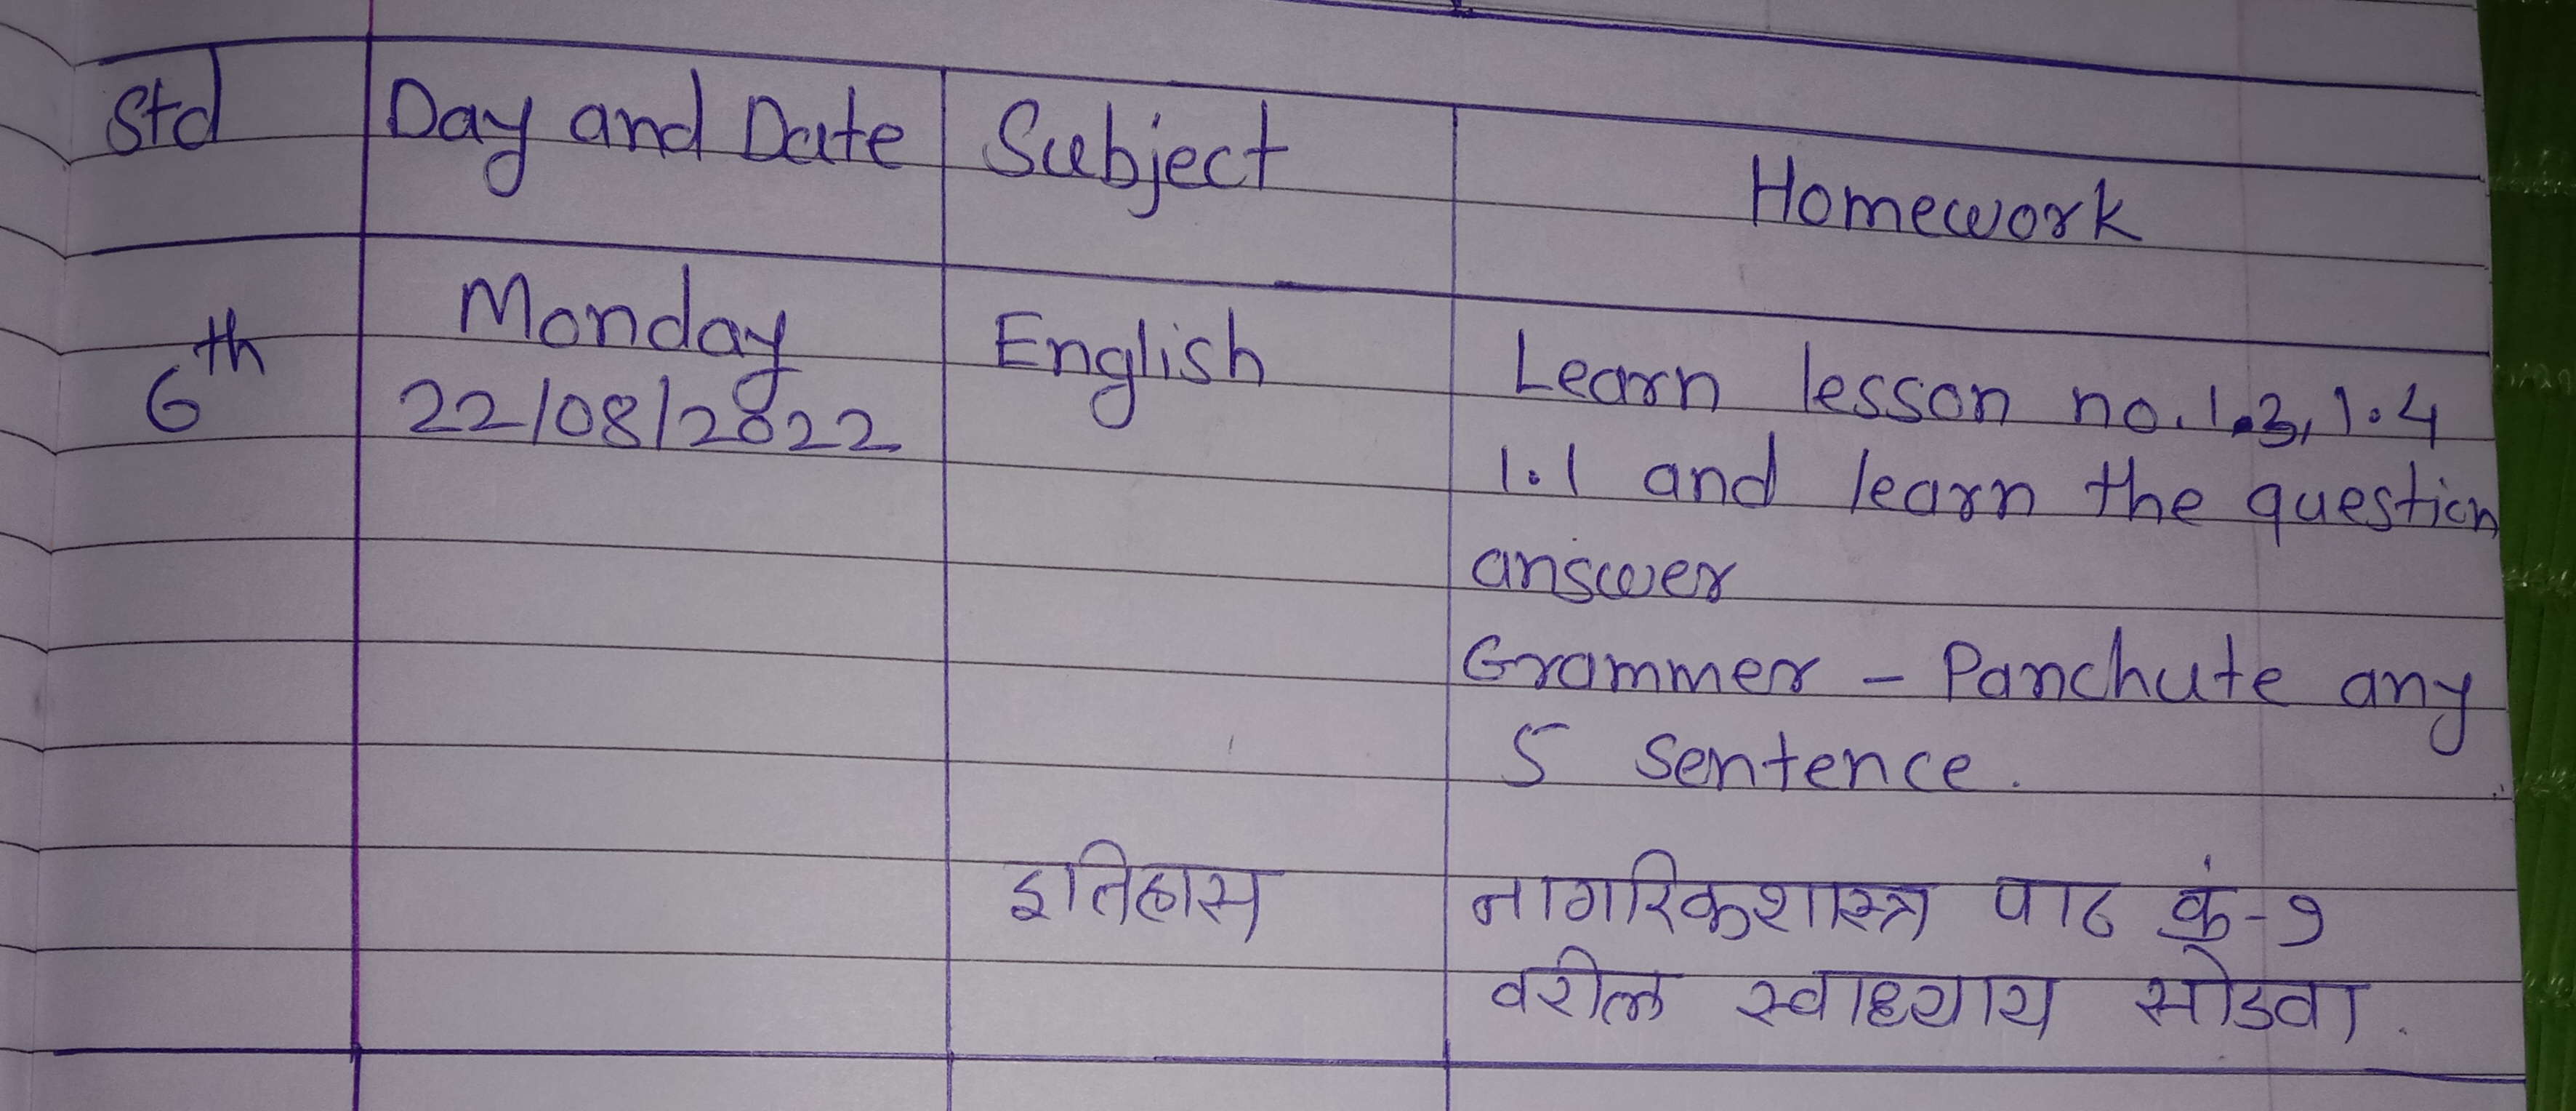 Std Day and Date Subject Homework
6th Monday English Learn lesson no. 1.3, 1.4
22/08/2022 1.1 and learn the question
answer
Grammer - Panchute any
5 sentence.
इतिहास नागरिकशास्त्र पाठ क्रं-१
वरील स्वाध्याय सोडवा.